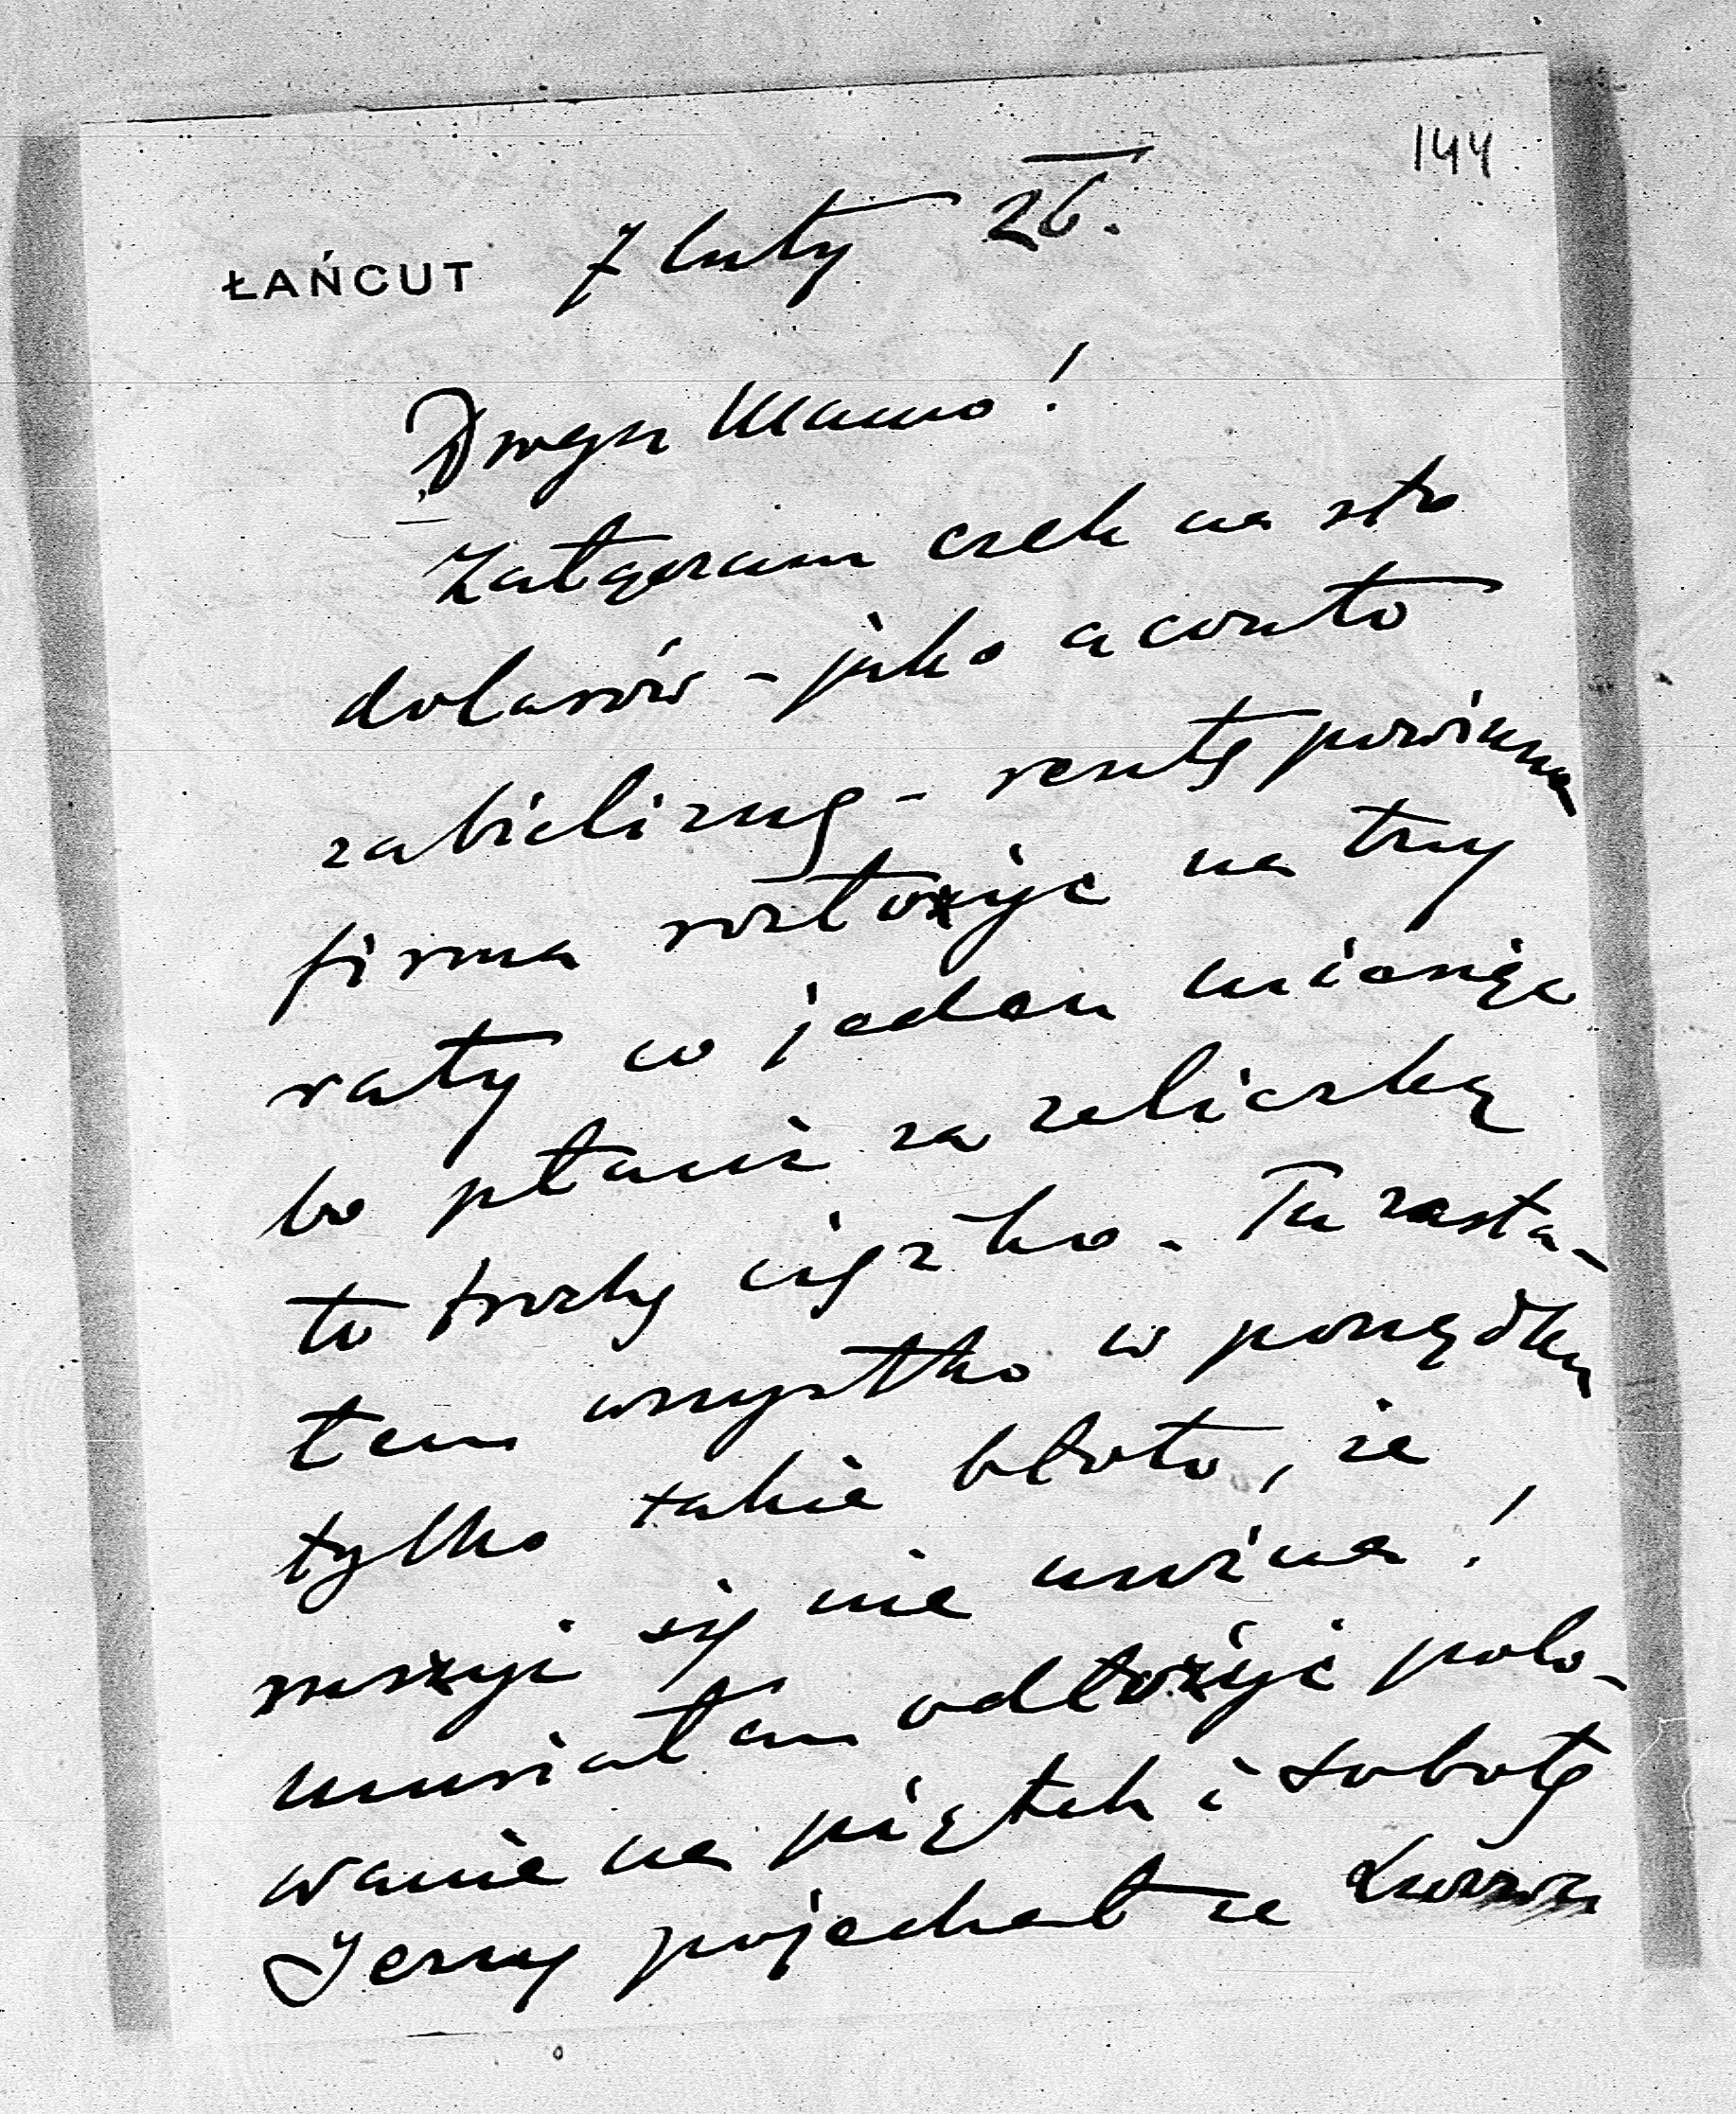 144
ŁAŃCUT 7 luty 26.
Droga Mamo!
Załączam czek na sto
dolarów - jako a conto
za bieliznę - resztę powinna
firma rozłożyć na trzy
raty co jeden miesiąc
bo płacić za zaliczką
to trochę ciężko. Tu zasta-
łem wszystko w porządku
tylko takie błoto, że
ruszyć się nie można!
musiałem odłożyć polo-
wanie na piątek i sobotę
Jerzy pojechał ze